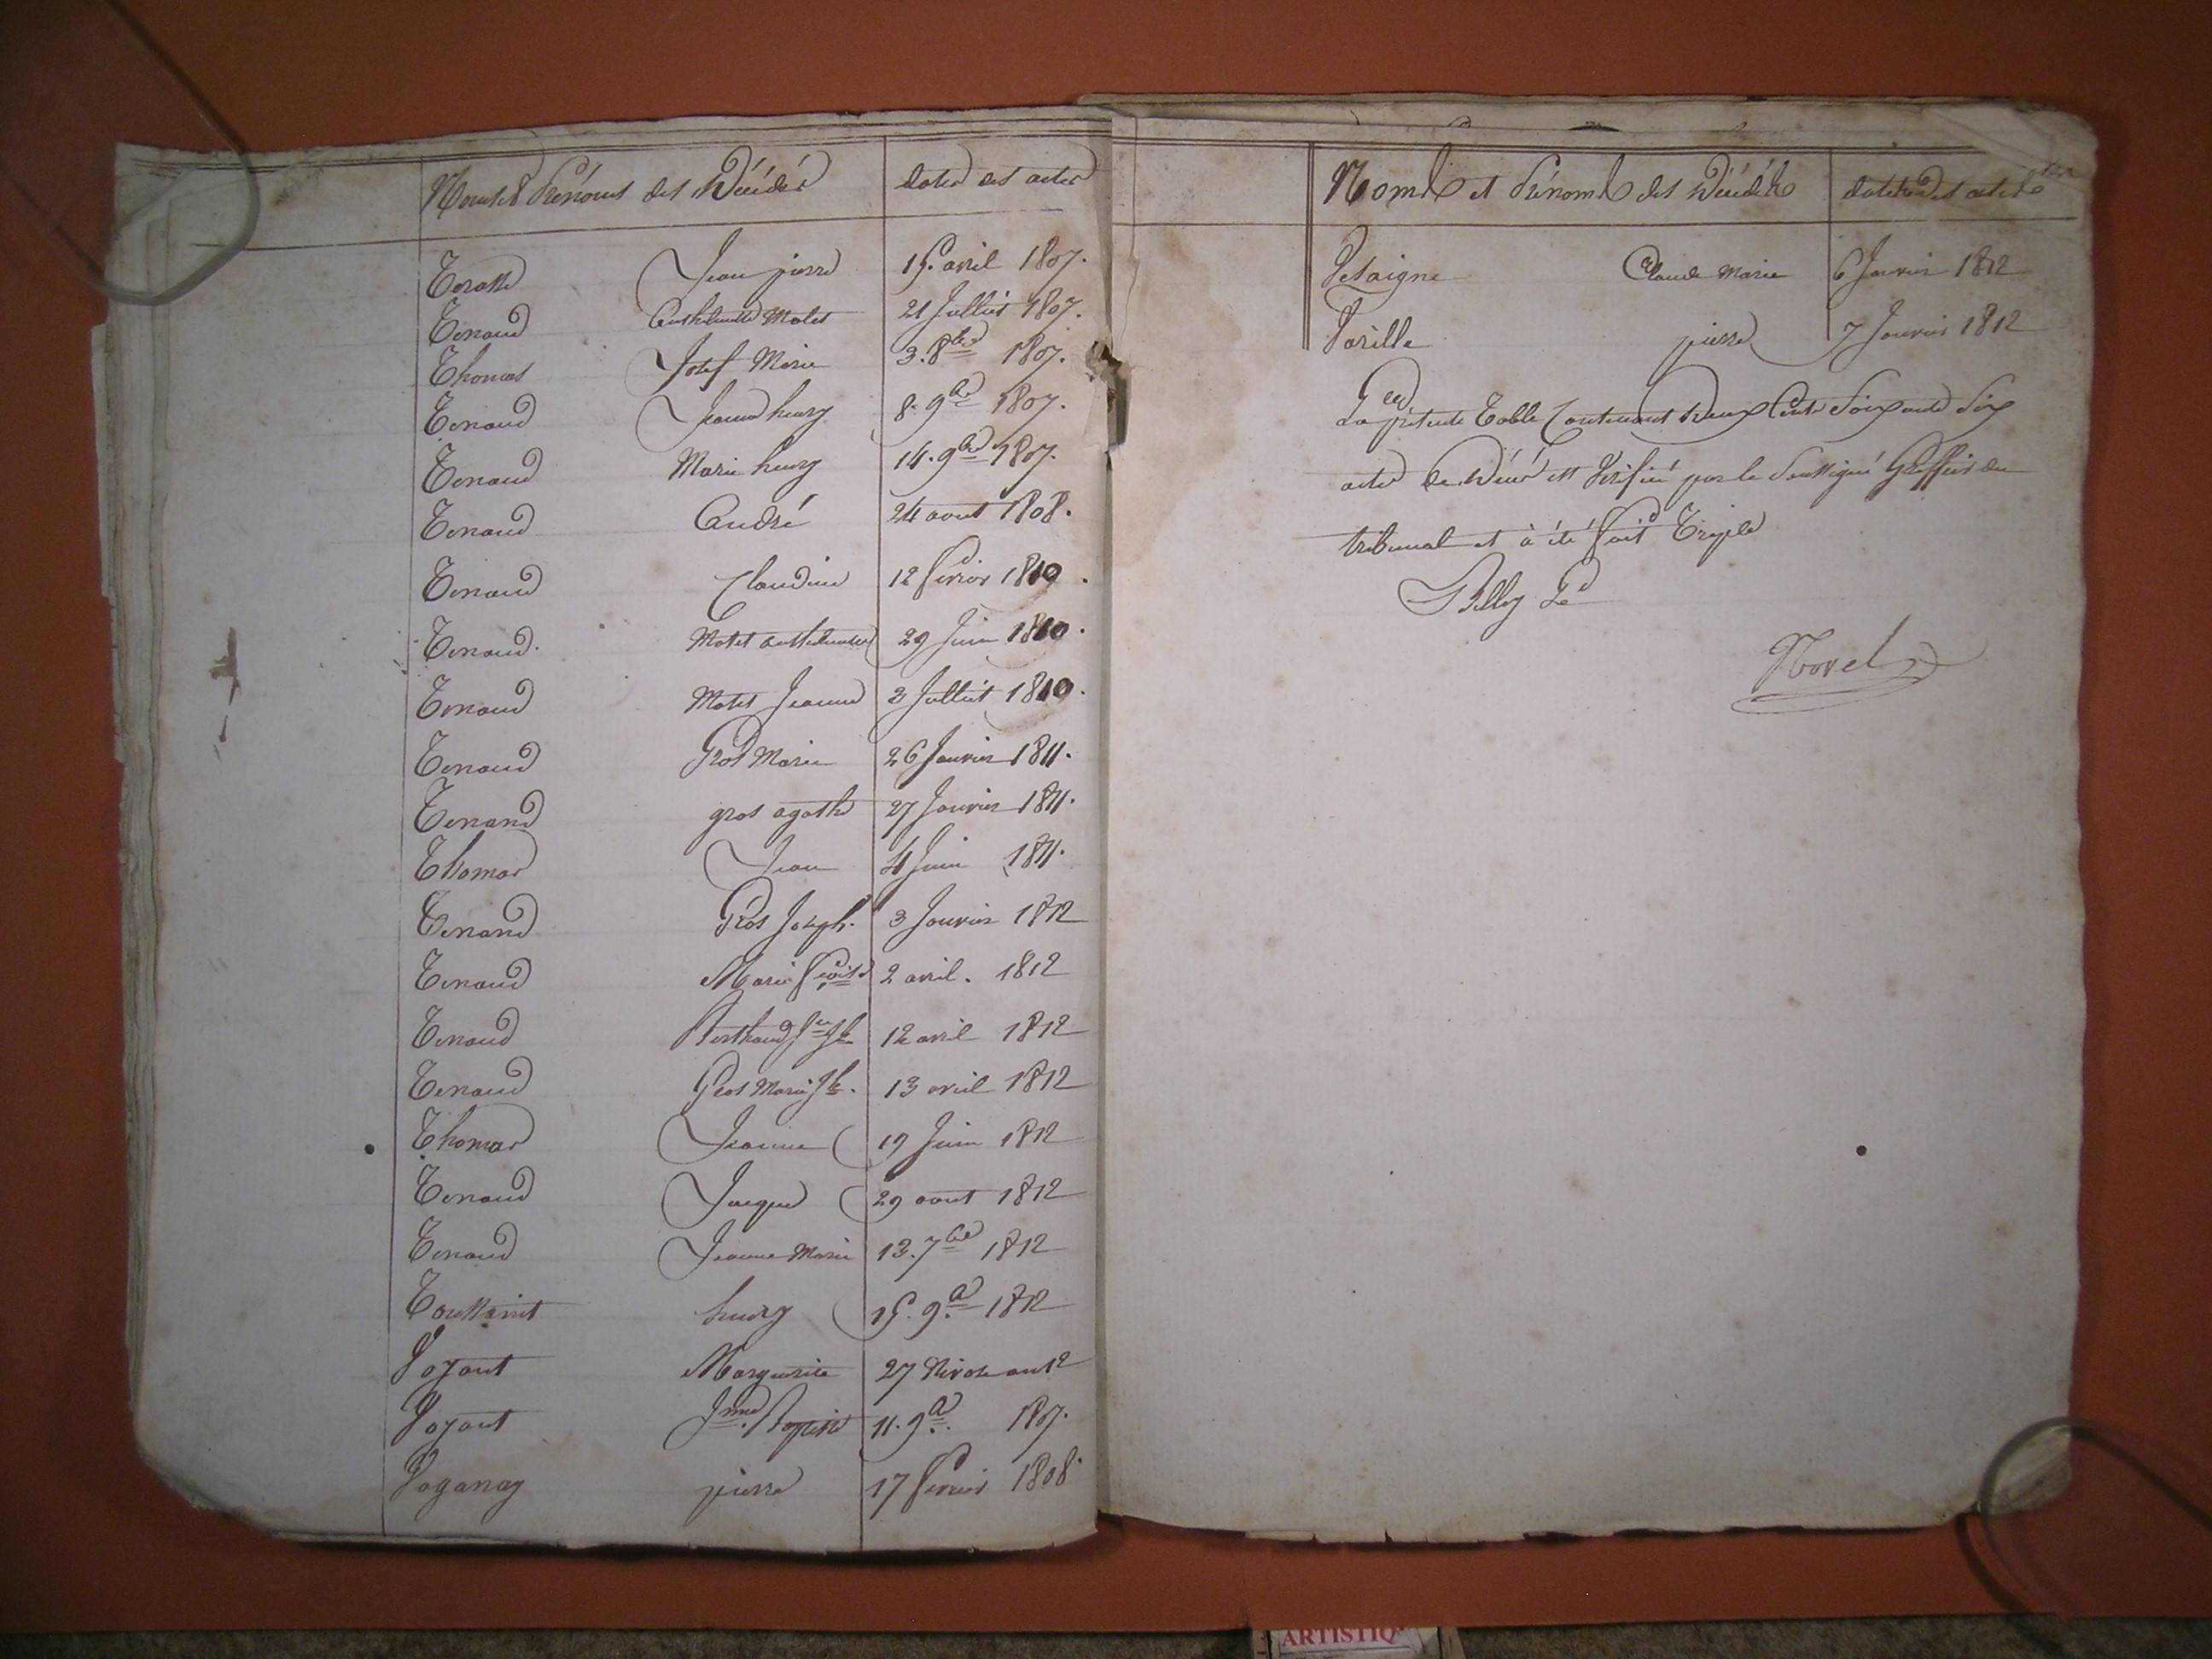 Noms & Prénoms des Décédés dates des actes
Teratte Jean pierre 15. avril 1807.
Tenaud Anthelmette Molet 21 Julliet 1807.
Thomas Josef Marie 3. 8bre 1807.
Tenaud Jeanne henry 8. 9bre 1807.
Tenaud Marie henry 14. 9bre 1807.
Tenaud André 24 aout 1808.
Tenaud Claudine 12 fevrier 1810.
Tenaud. Molet anthelmette 29 Juin 1810.
Tenaud Molet Jeanne 3 Julliet 1810.
Tenaud Gros Marie 26 Janvier 1811.
Tenand gros agathe 27 Janvier 1811.
Thomas Jean 4 Juin 1811.
Tenand Gros Joseph. 3 Janvier 1812
Tenaud Marie 2 avril. 1812
Tenaud Berthaud 12 avril 1812
Tenaud Gros Marie Jh. 13 avril 1812
Thomas Jeanne 19 Juin 1812
Tenaud Jacques 29 aout 1812
Tenaud Jeanne Marie 13. 7bre 1812
Toussaint henry 15. 9e. 1812
Voyant Marguerite 27 Nivose an 12
Voyant Jnne. 11. 9e. 1807.
Vaganay pierre 17 fevrier 1808.
Noms et Prénoms des Décédés dates des actes
Claude Marie 6 Janvier 1812
pierre 7 Janvier 1812
La présente Table Contenant Deux Cents Soixante Six
actes de Décés est Vérifiée par le Soussigné Greffier du
tribunal et à été fait Triple
Morel
ARTISTIQ